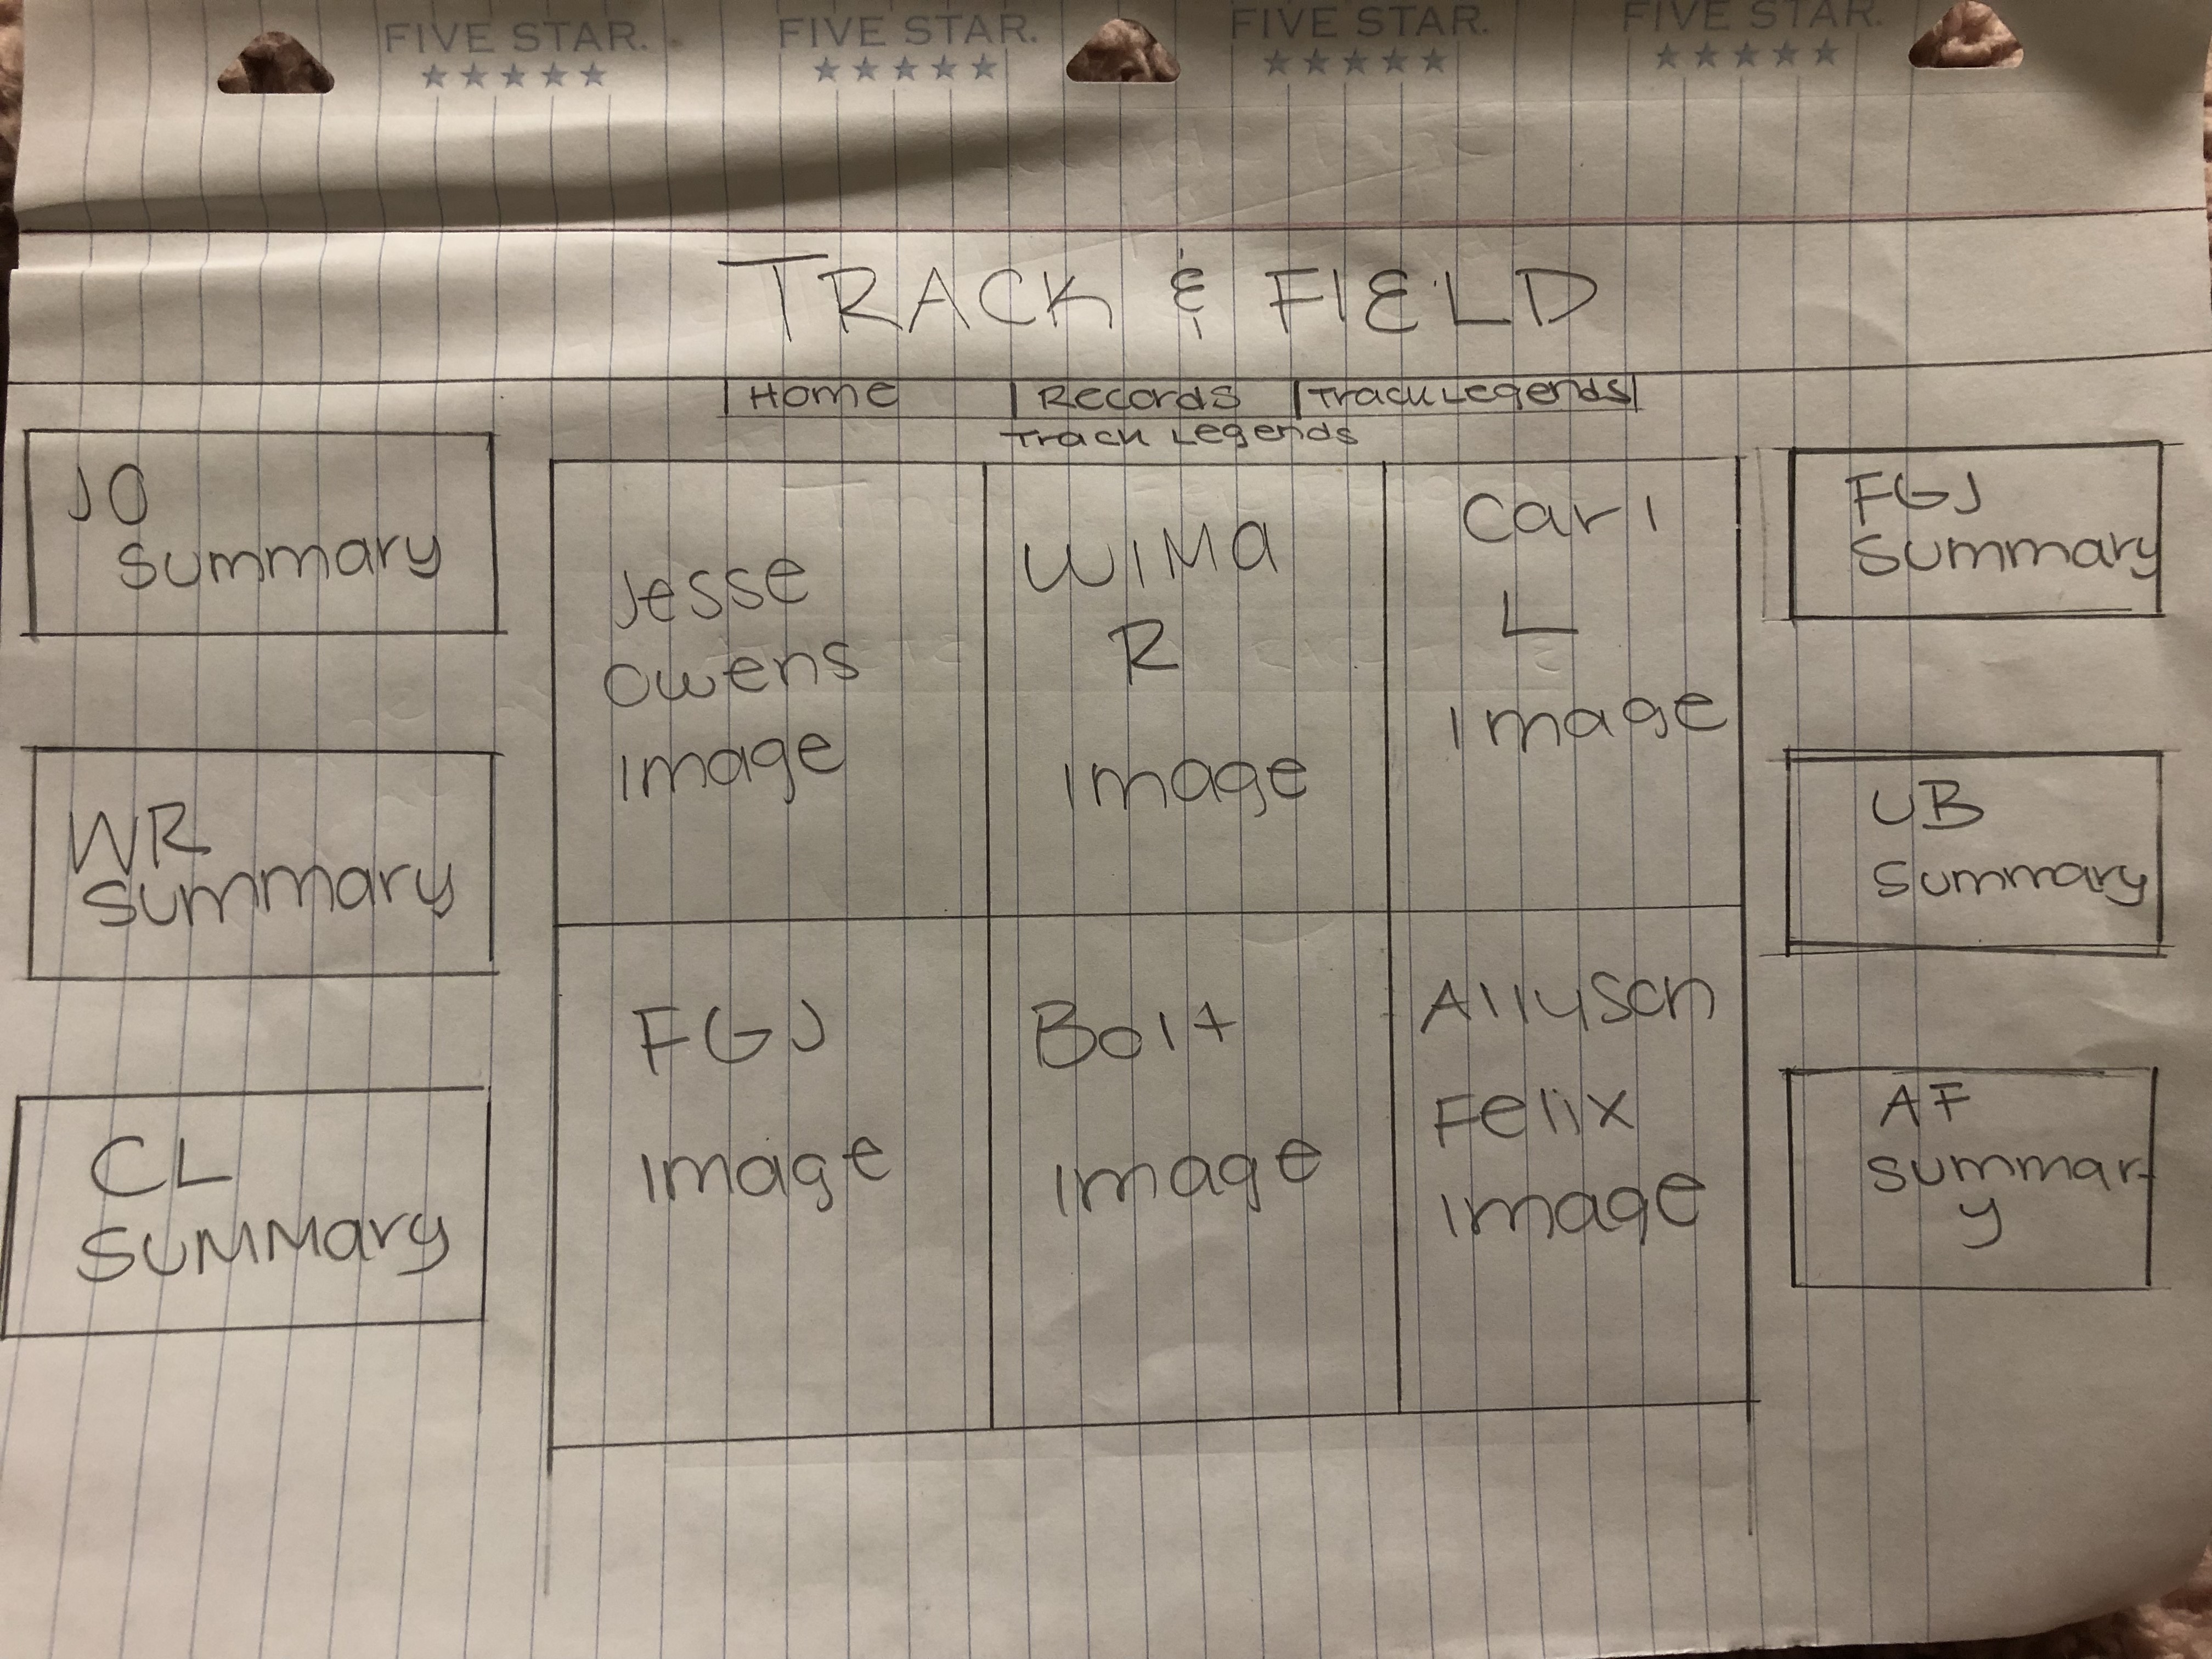 FIVE STAR. FIVE STAR. FIVE STAR. FIVE STAR.
TRACK & FIELD
Home Records Track Legends
Track Legends
JO
Summary
WR
Summary
CL
Summary
Jesse
Owens
Image
Wilma
R
Image
Carl
L
Image
FGJ
Image
Bolt
Image
Allyson
Felix
Image
FGJ
Summary
UB
Summary
AF
Summar-
y